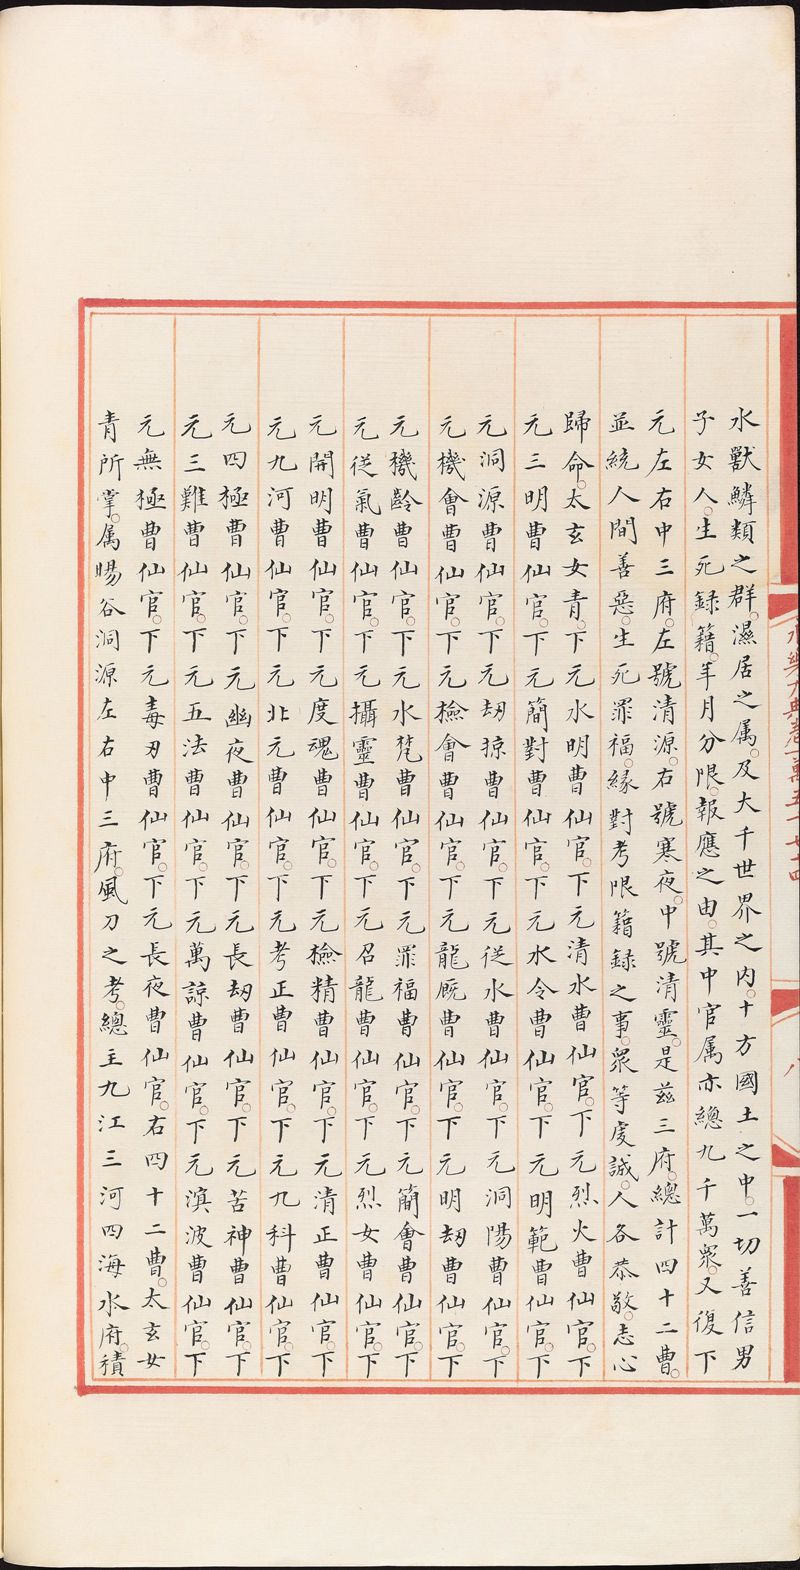 水獸鱗類之群。濕居之属。及大千世界之内。十方國土之中。一切善信男
子女人。生死録籍。年月分限。報應之由。其中官属亦總九千萬衆。又復下
元左右中三府。左號清源。右號寒夜。中號清靈。是兹三府。總計四十二曹。
並統人間善惡。生死罪福。緣對考限籍録之事。衆等虔誠。人各恭敬。志心
歸命。太玄女青。下元水明曹仙官。下元清水曹仙官。下元烈火曹仙官。下
元三明曹仙官。下元簡對曹仙官。下元水令曹仙官。下元明範曹仙官。下
元洞源曹仙官。下元刼掠曹仙官。下元従水曹仙官。下元洞陽曹仙官。下
元機會曹仙官。下元檢會曹仙官。下元龍厩曹仙官。下元明刼曹仙官。下
元機齡曹仙官。下元水梵曹仙官。下元罪福曹仙官。下元簡會曹仙官。下
元従氣曹仙官。下元攝靈曹仙官。下元召龍曹仙官。下元烈女曹仙官。下
元開明曹仙官。下元度魂曹仙官。下元檢精曹仙官。下元清正曹仙官。下
元九河曹仙官。下元北元曹仙官。下元考正曹仙官。下元九科曹仙官。下
元四極曹仙官。下元幽夜曹仙官。下元長刼曹仙官。下元苦神曹仙官。下
元三難曹仙官。下元五法曹仙官。下元萬諒曹仙官。下元滇波曹仙官。下
元無極曹仙官。下元毒刃曹仙官。下元長夜曹仙官。右四十二曹。太玄女
青所掌。属暘谷洞源左右中三府。風刀之考。總主九江三河四海水府。積
八